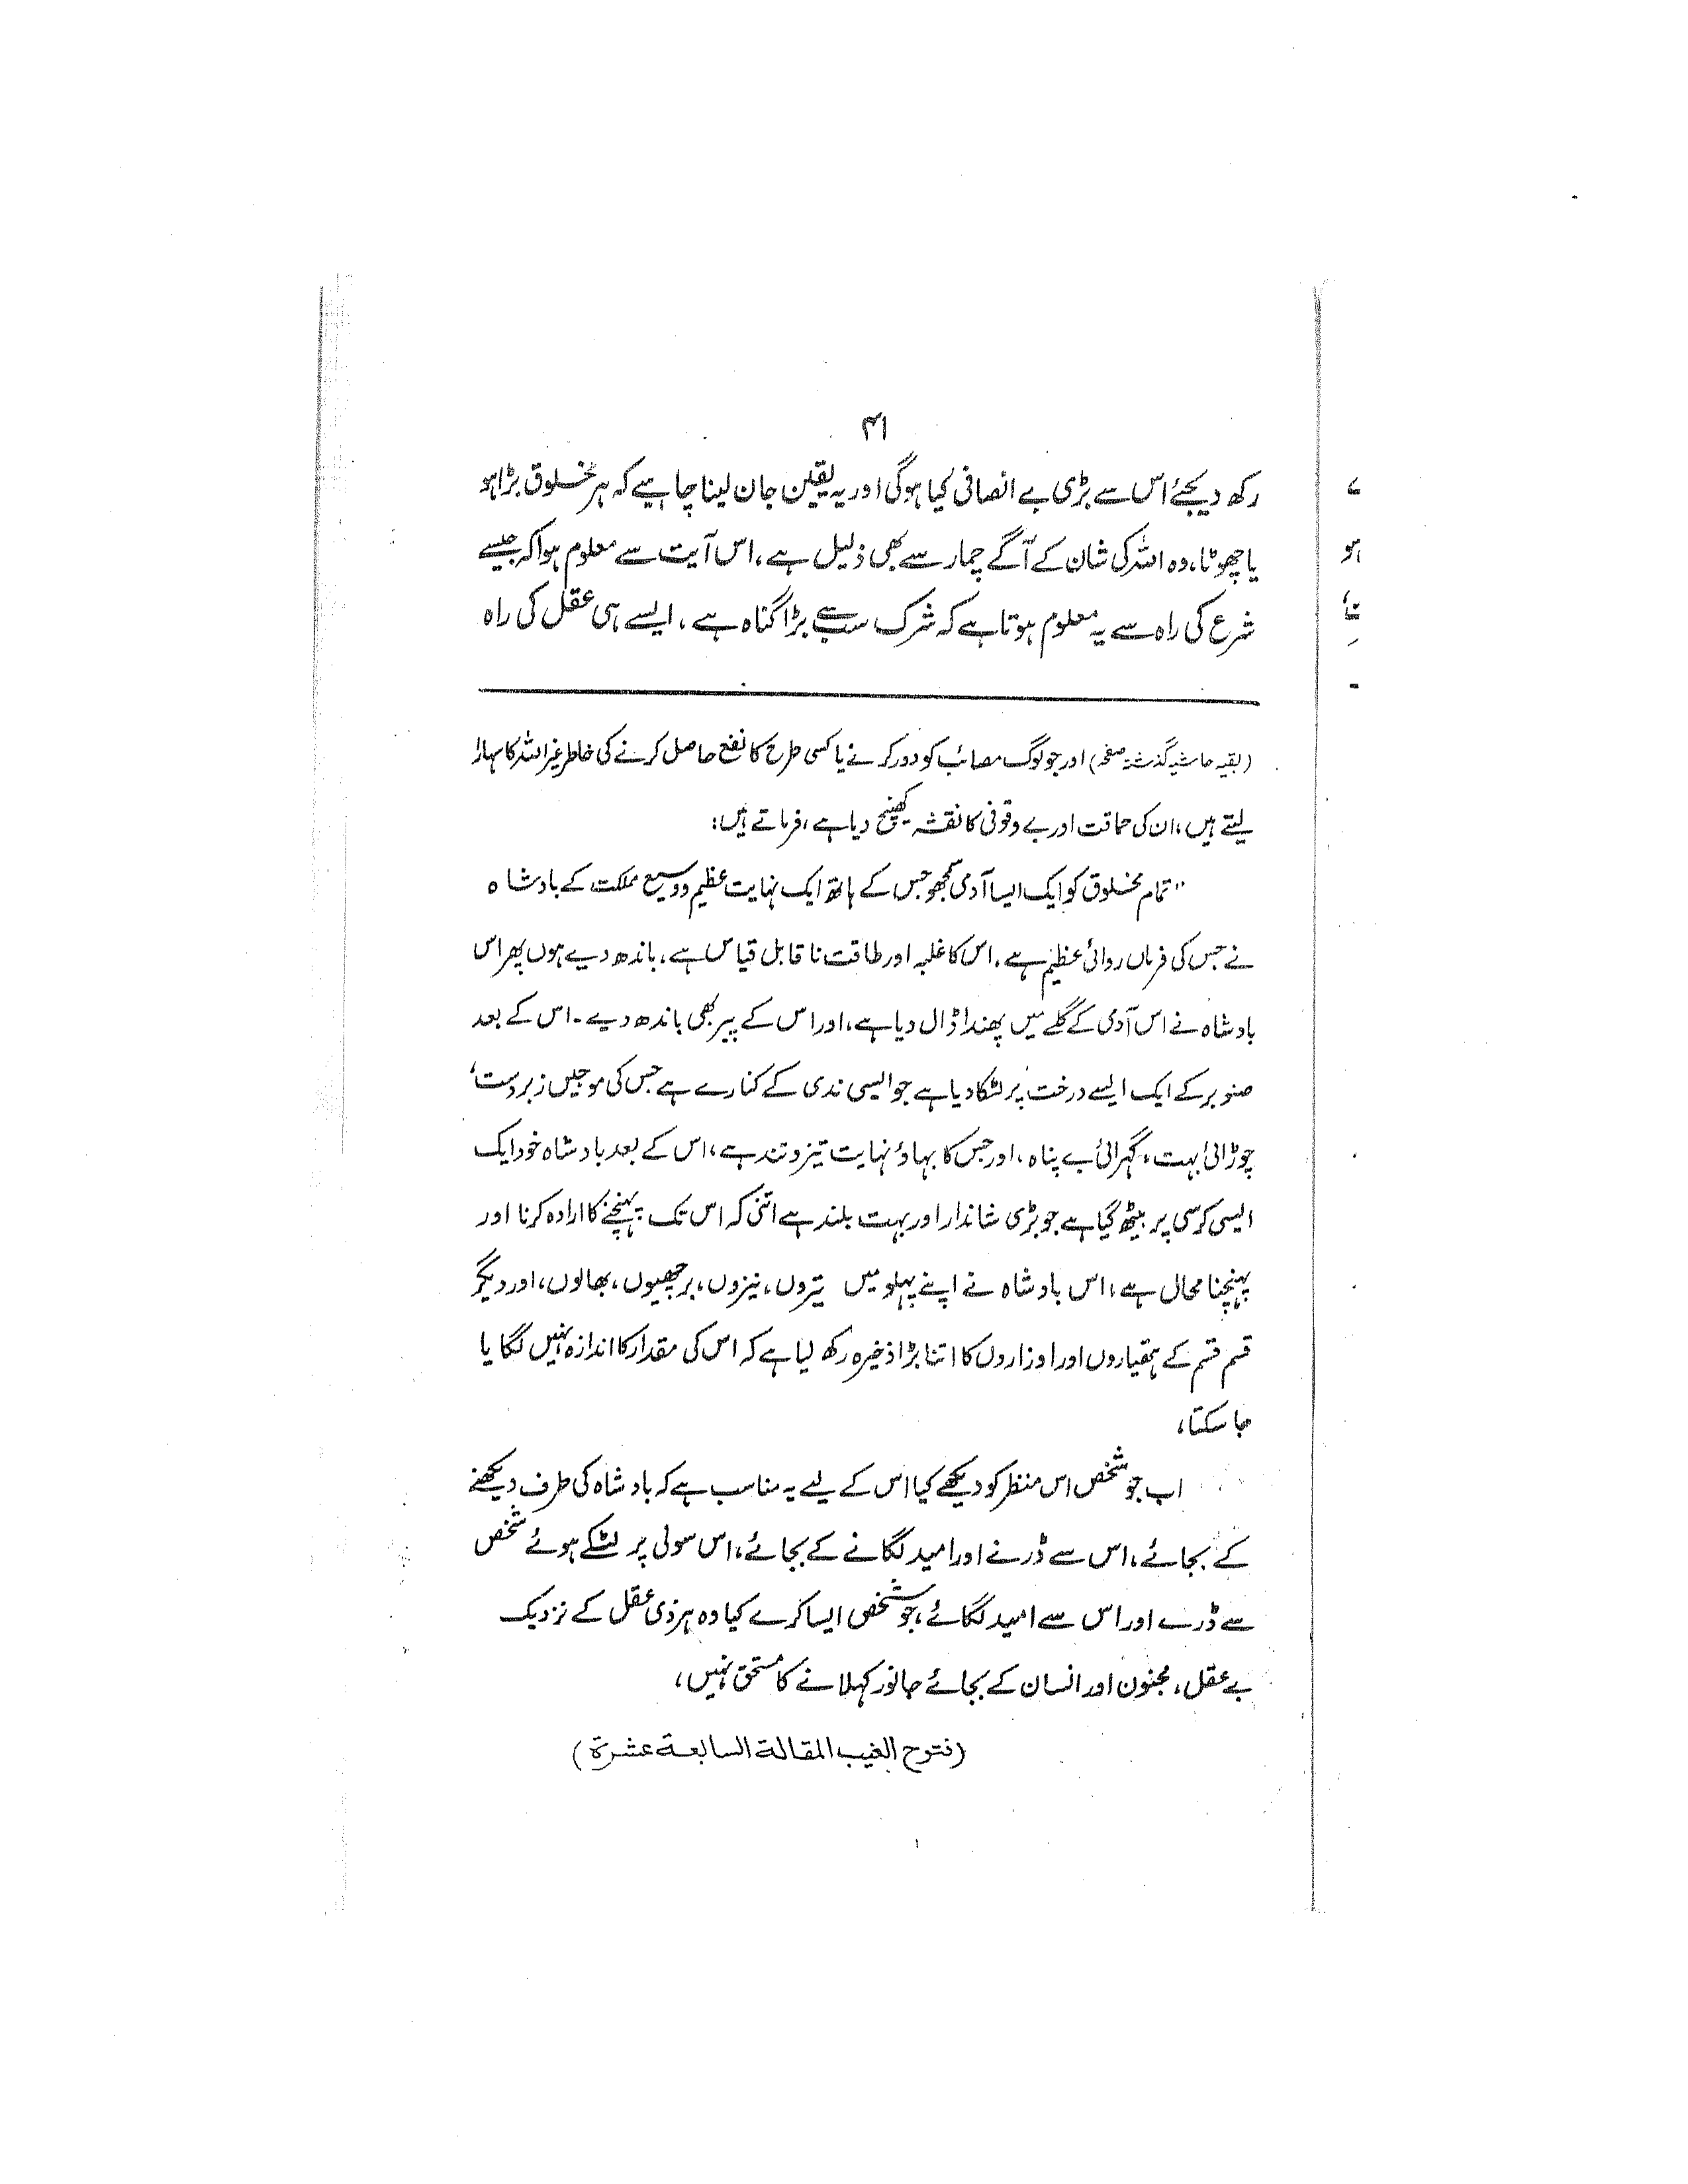 ۴۱
رکھ دیجئے اس سے بڑی بے انصافی کیا ہوگی اور یہ یقین جان لینا چاہیے کہ ہر مخلوق بڑا ہو
یا چھوٹا، وہ اللہ کی شان کے آگے چمار سے بھی ذلیل ہے، اس آیت سے معلوم ہوا کہ جیسے
شرع کی راہ سے یہ معلوم ہوتا ہے کہ شرک سب سے بڑا گناہ ہے، ایسے ہی عقل کی راہ
(بقیہ حاشیہ گذشتہ صفحہ) اور جو لوگ مصائب کو دور کرنے یا کسی طرح کا نفع حاصل کرنے کی خاطر غیر اللہ کا سہارا
لیتے ہیں، ان کی حماقت اور بے وقوفی کا نقشہ کھینچ دیا ہے، فرماتے ہیں:
"تمام مخلوق کو ایک ایسا آدمی سمجھو جس کے ہاتھ ایک نہایت عظیم و وسیع مملکت کے بادشاہ
نے جس کی فرماں روائی عظیم ہے، اس کا غلبہ اور طاقت ناقابل قیاس ہے، باندھ دیے ہوں پھر اس
بادشاہ نے اس آدمی کے گلے میں پھندا ڈال دیا ہے، اور اس کے پیر بھی باندھ دیے۔ اس کے بعد
صنوبر کے ایک ایسے درخت پر لٹکا دیا ہے جو ایسی ندی کے کنارے ہے جس کی موجیں زبردست،
چوڑائی بہت، گہرائی بے پناہ، اور جس کا بہاؤ نہایت تیز و تند ہے، اس کے بعد بادشاہ خود ایک
ایسی کرسی پر بیٹھ گیا ہے جو بڑی شاندار اور بہت بلند ہے اتنی کہ اس تک پہنچنے کا ارادہ کرنا اور
پہنچنا محال ہے، اس بادشاہ نے اپنے پہلو میں تیروں، نیزوں، برچھیوں، بھالوں، اور دیگر
قسم قسم کے ہتھیاروں اور اوزاروں کا اتنا بڑا ذخیرہ رکھ لیا ہے کہ اس کی مقدار کا اندازہ نہیں لگایا
جا سکتا،
اب جو شخص اس منظر کو دیکھے کیا اس کے لیے یہ مناسب ہے کہ بادشاہ کی طرف دیکھنے
کے بجائے، اس سے ڈرنے اور امید لگانے کے بجائے، اس سولی پر لٹکے ہوئے شخص
سے ڈرے اور اس سے امید لگائے، جو شخص ایسا کرے کیا وہ ہر ذی عقل کے نزدیک
بے عقل، مجنون اور انسان کے بجائے جانور کہلانے کا مستحق نہیں،
(فتوح الغیب المقالة السابعة عشرة)